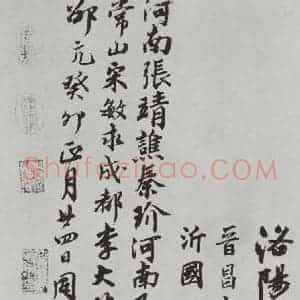 洛陽
晉昌
沂國
河南張靖譙秦玠河南
常山宋敏求成都李大
邵亢癸卯正月廿四日同
Shufazidao.com